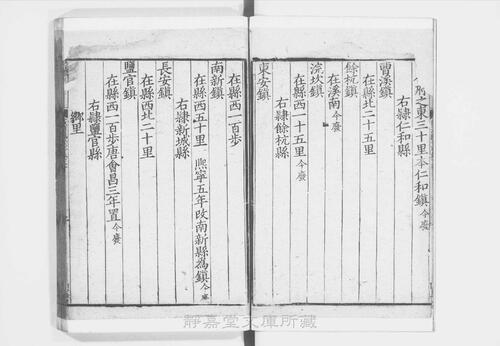 州之東三十里本仁和鎮今廢
右隷仁和縣
曹溪鎮
在縣北二十五里
餘杭鎮
在溪南今廢
浣坎鎮
在縣西一十五里今廢
右隷餘杭縣
東安鎮
在縣西一百步
南新鎮
在縣西五十里 熈寧五年改南新縣為鎮今廢
右隷新城縣
長安鎮
在縣西北二十里
鹽官鎮
在縣西一百步唐會昌三年置今廢
右隷鹽官縣
鄉里
靜嘉堂文庫所藏